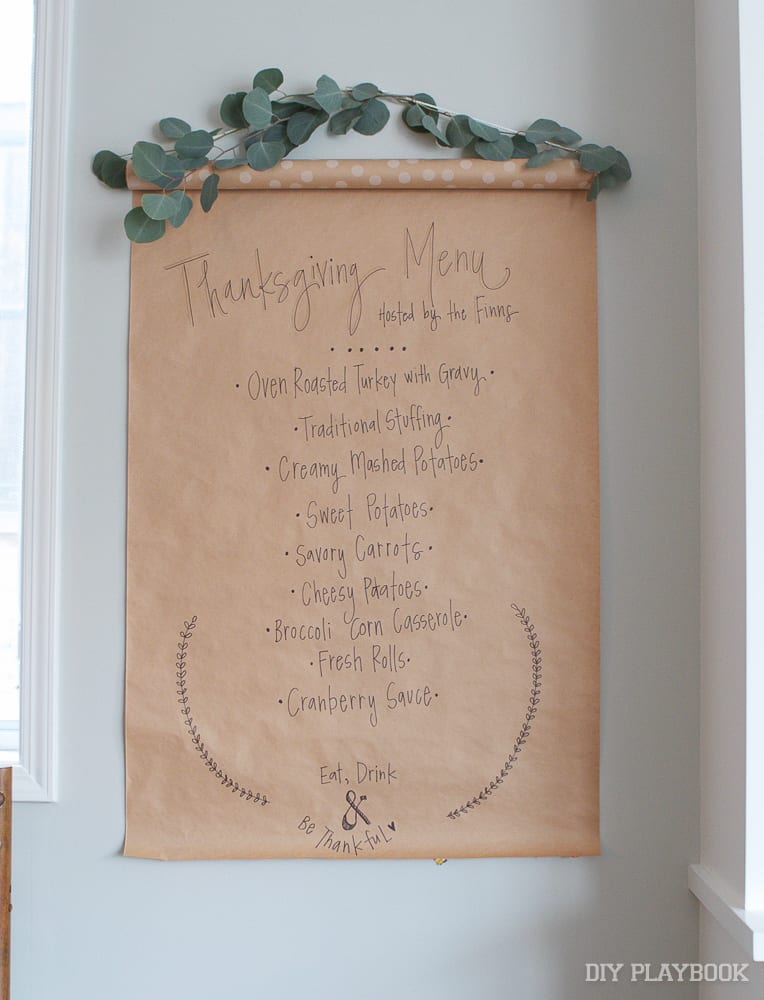 Thanksgiving Menu
Hosted by the Finns
• • • • • •
• Oven Roasted Turkey with Gravy •
• Traditional Stuffing •
• Creamy Mashed Potatoes •
• Sweet Potatoes •
• Savory Carrots •
• Cheesy Potatoes •
• Broccoli Corn Casserole •
• Fresh Rolls •
• Cranberry Sauce •
Eat, Drink
&
Be Thankful ♥
DIY PLAYBOOK